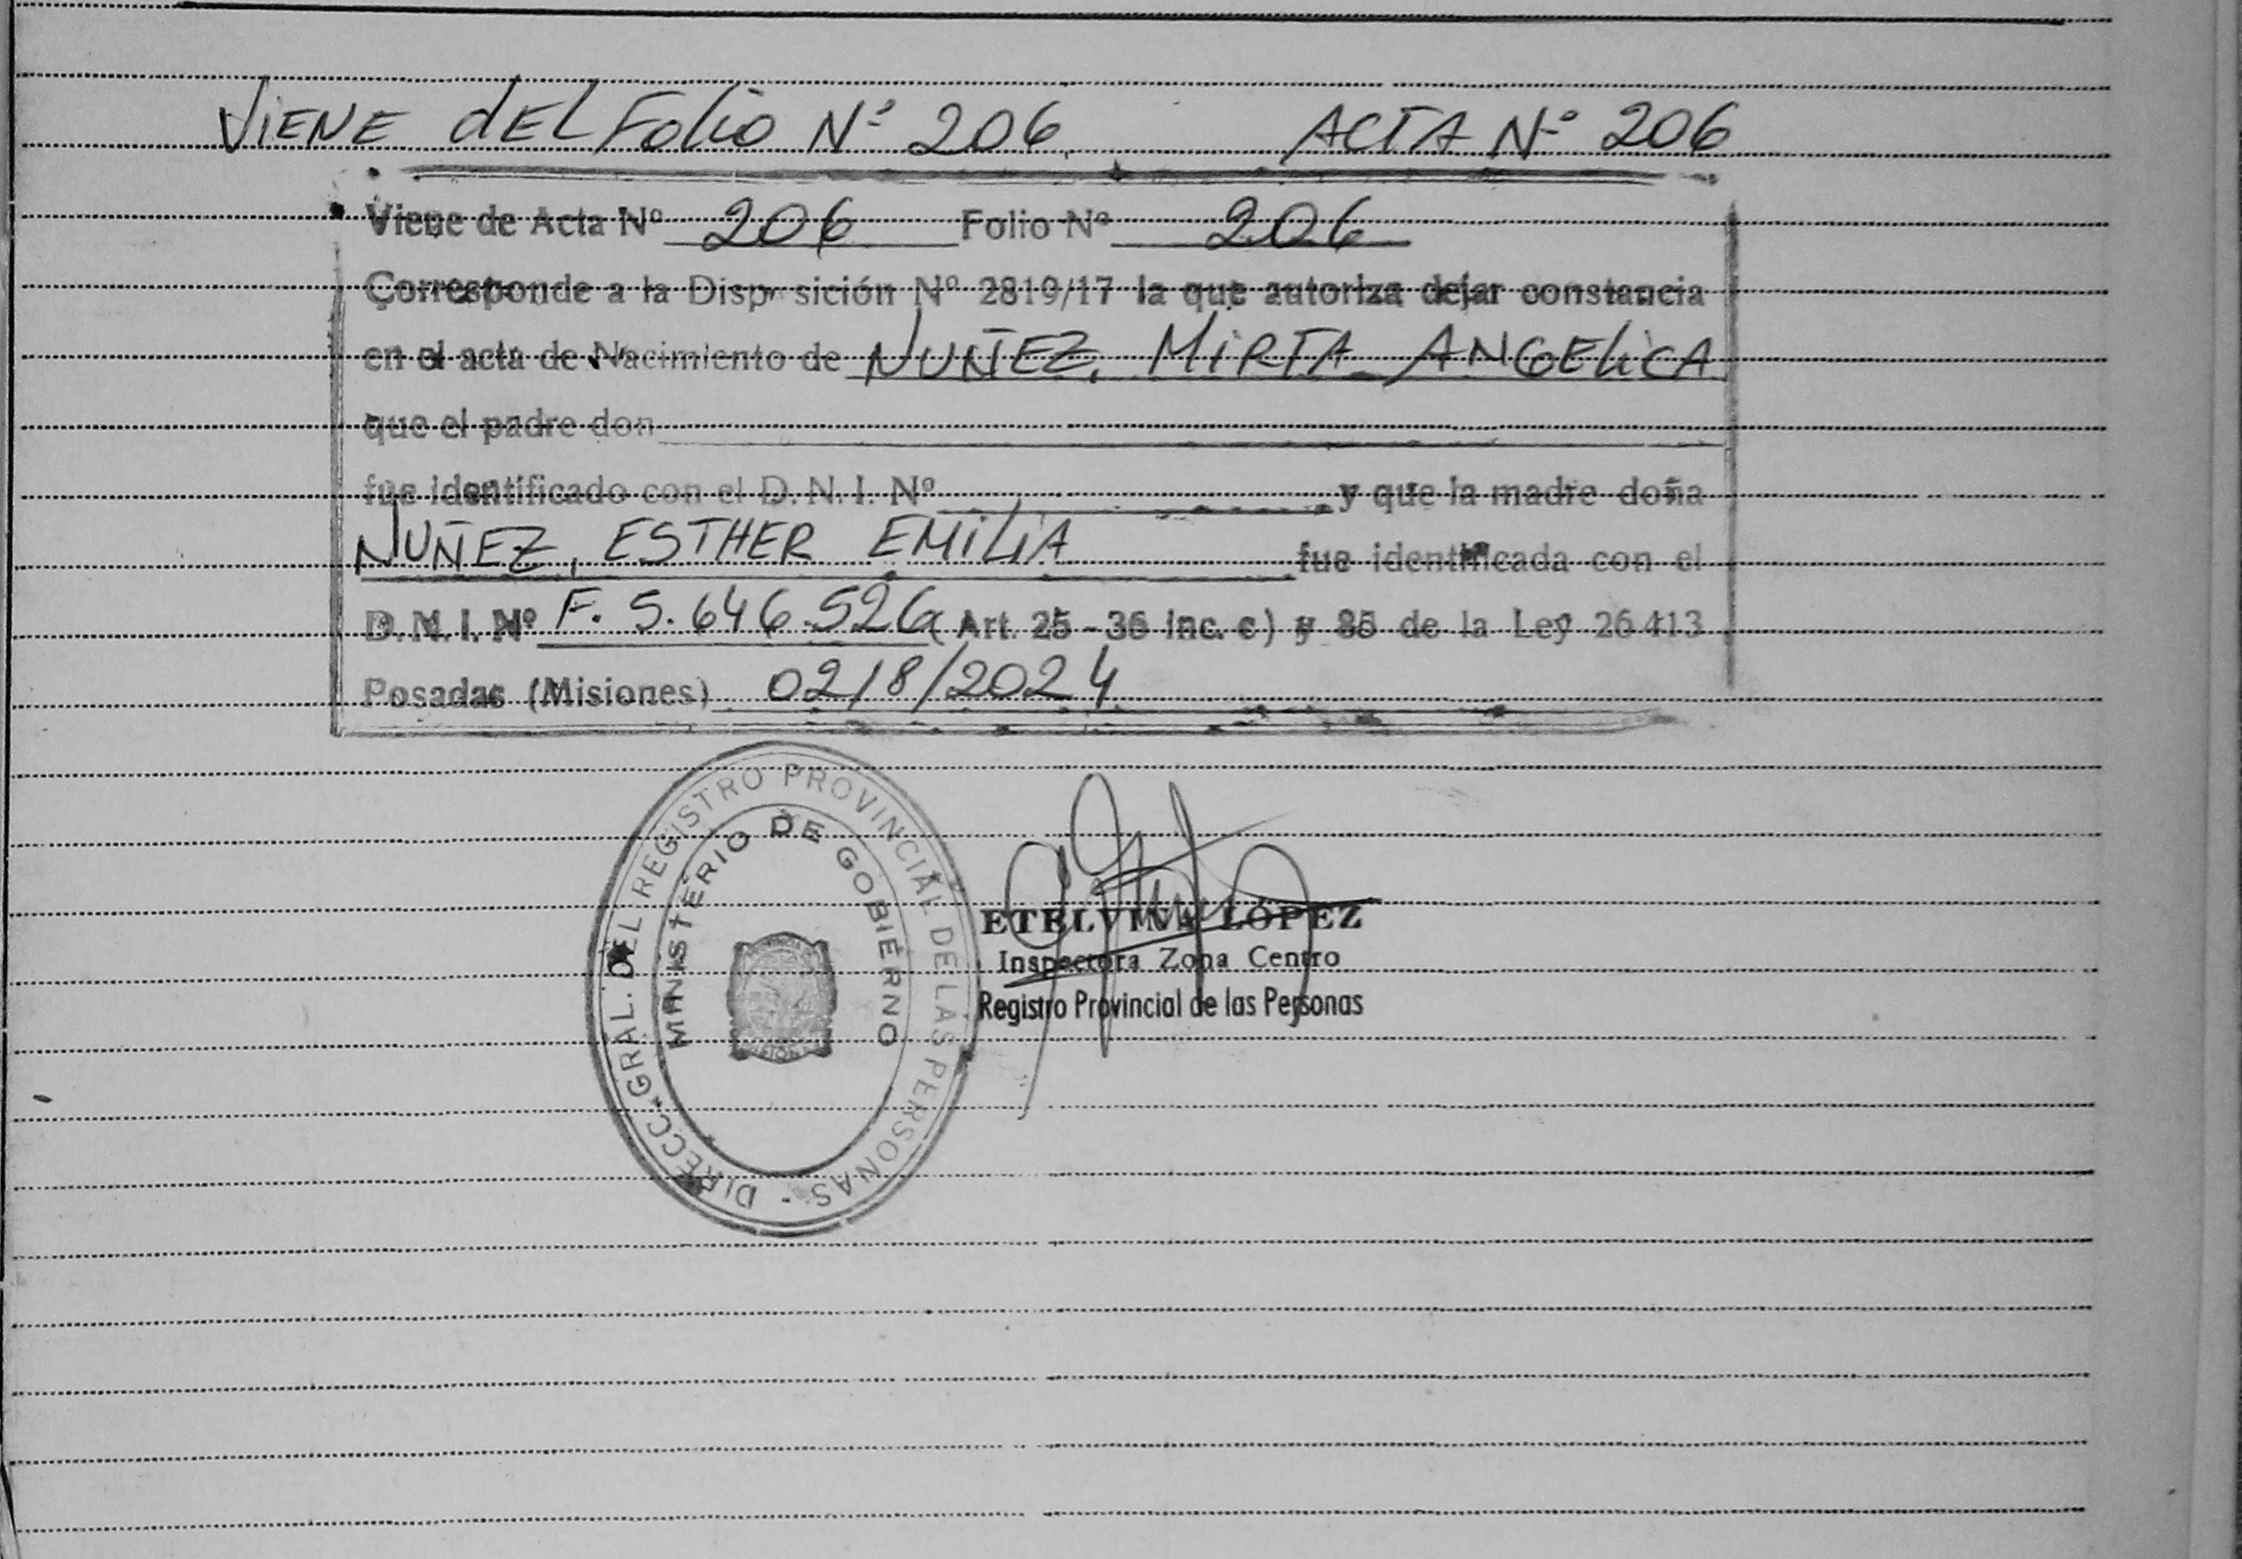 VIENE DEL FOLIO Nº 206. ACTA Nº 206
Viene de Acta Nº 206 Folio Nº 206
Corresponde a la Disp sición Nº 2819/17 la que autoriza dejar constancia
en el acta de Nacimiento de NUÑEZ, MIRTA ANGELICA
que el padre don
fue identificado con el D. N. I. Nº y que la madre doña
NUÑEZ, ESTHER EMILIA fue identificada con el
D. N. I. Nº F. 5.646.526 (Art. 25 - 36 inc. c) y 85 de la Ley 26413
Posadas (Misiones) 02/8/2024
DIRECC. GRAL. DEL REGISTRO PROVINCIAL DE LAS PERSONAS -
MINISTERIO DE GOBIERNO
ETELVINA LÓPEZ
Inspectora Zona Centro
Registro Provincial de las Personas